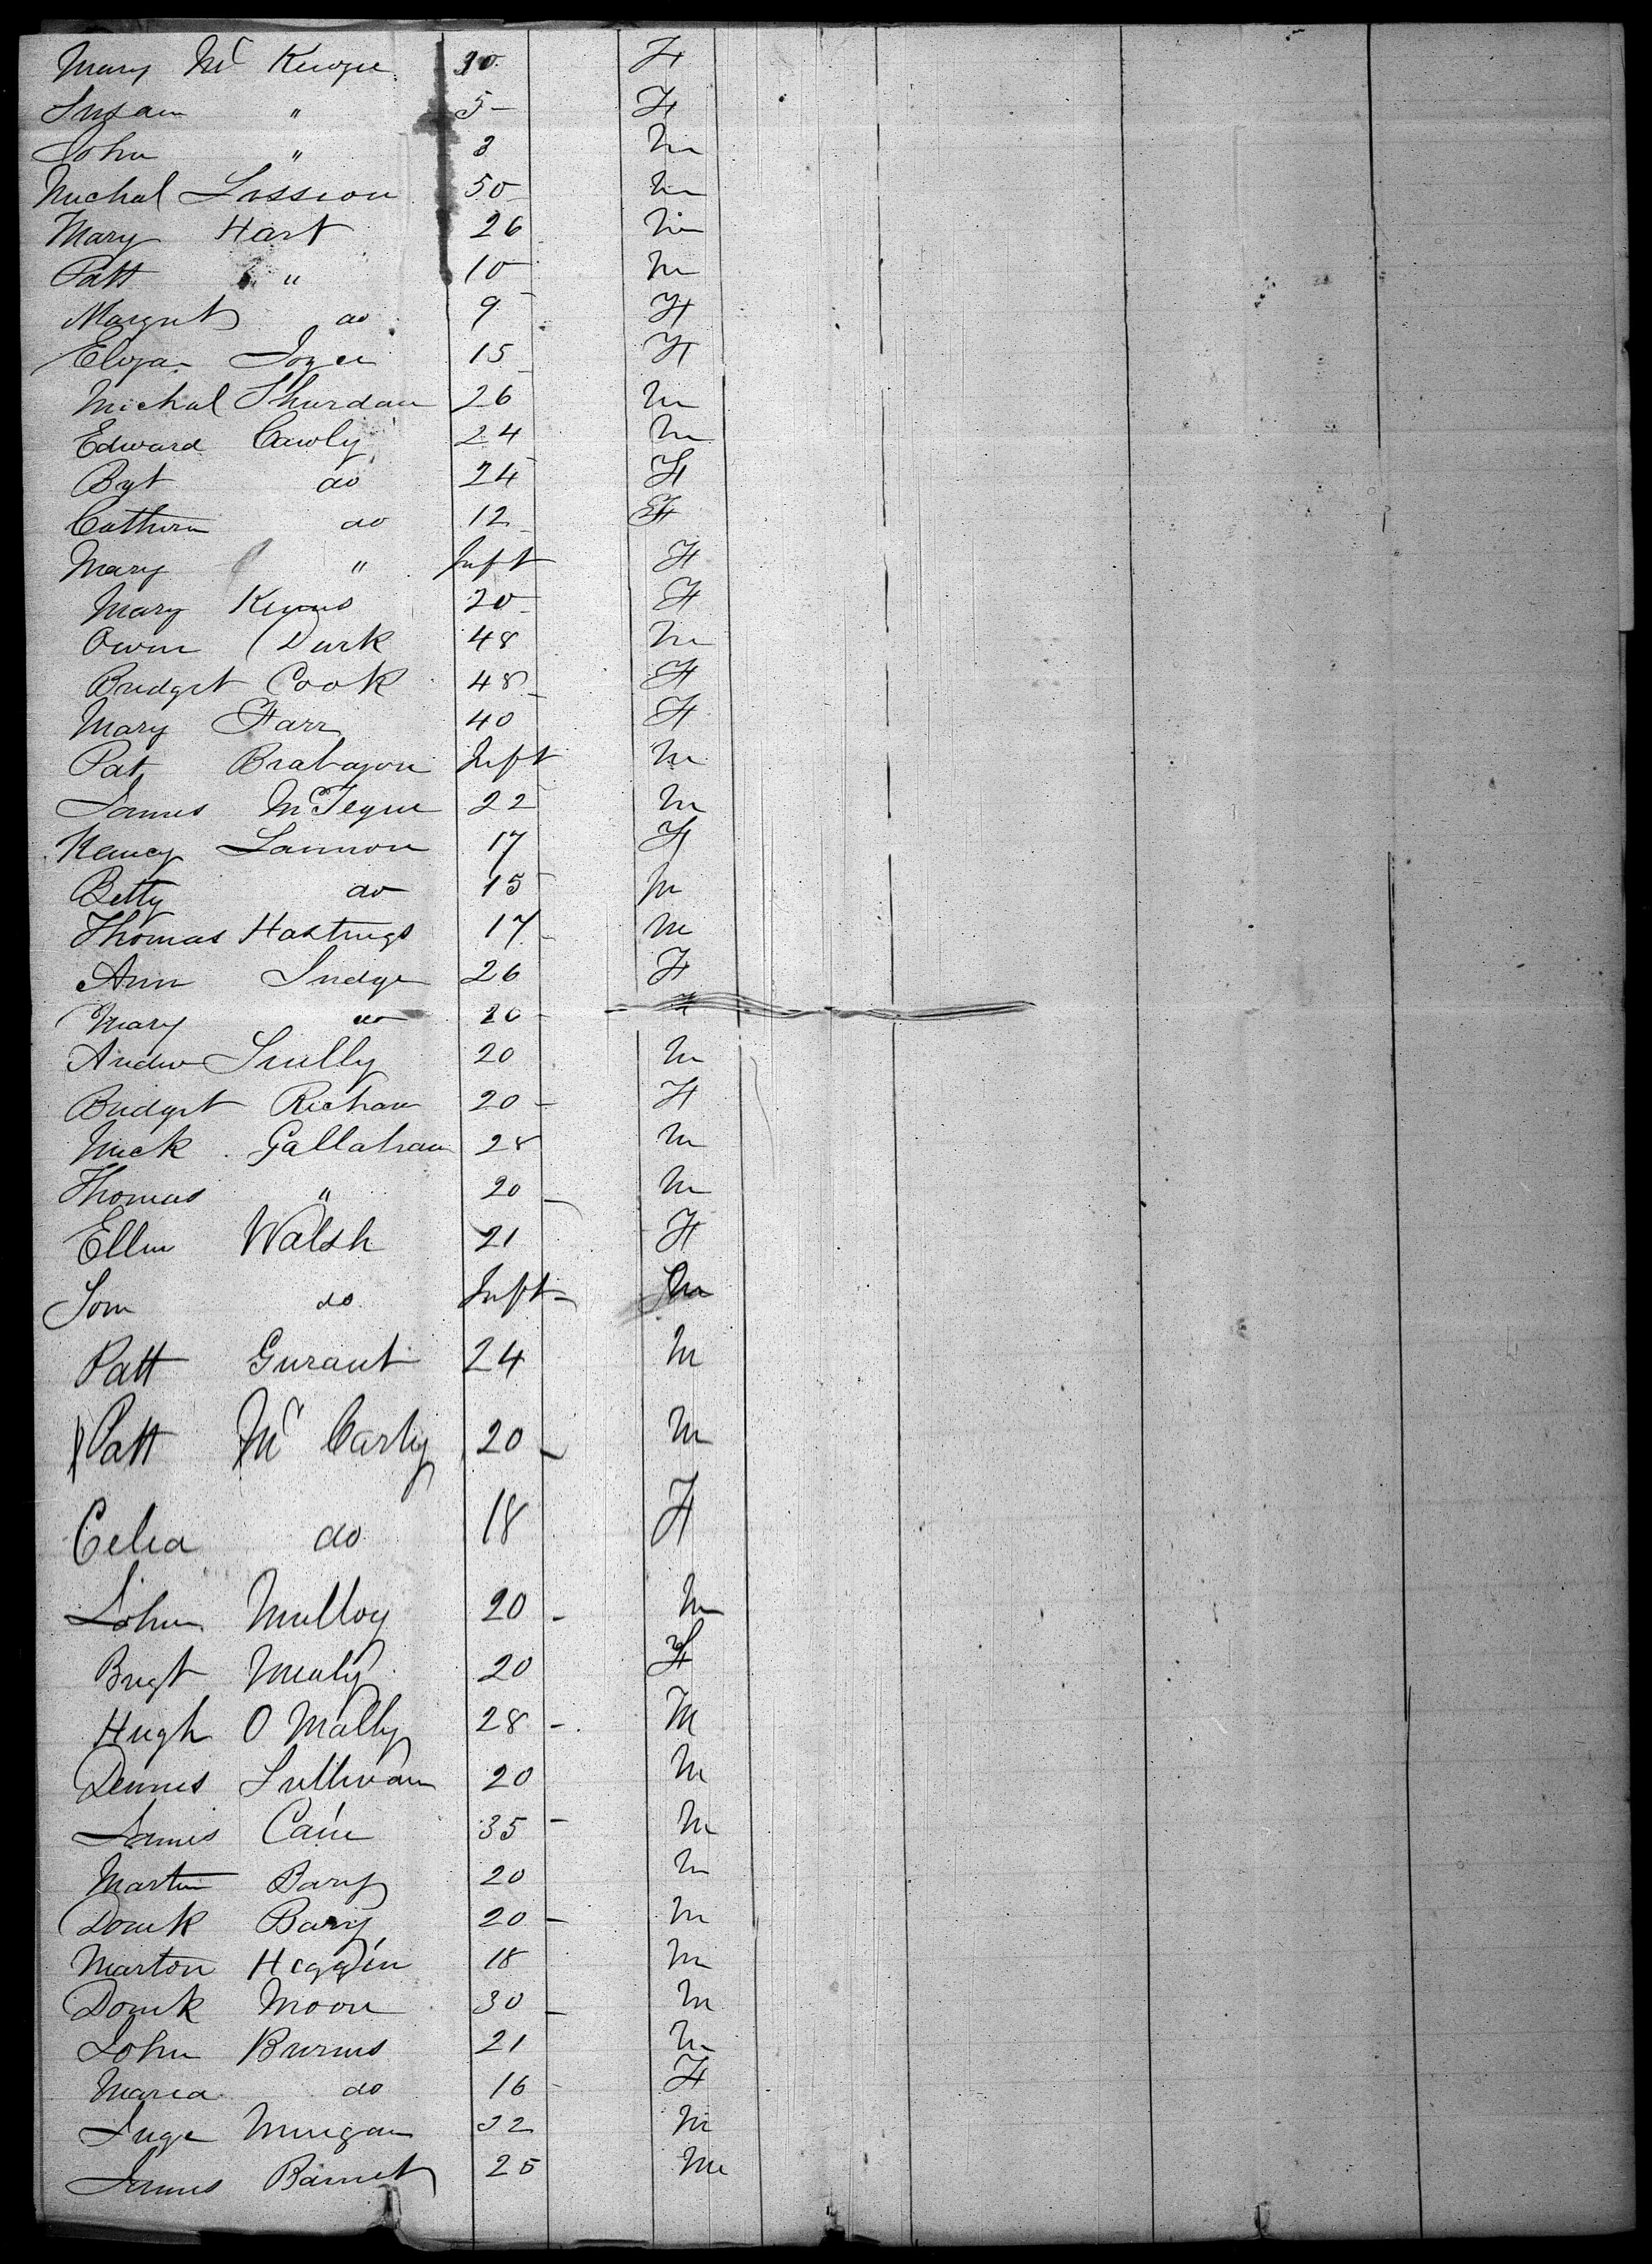 Mary Mc Kenzie 30 F
Susan " 5 F
John " 3 M
Michal Lission 50 M
Mary Hart 26 M
Patt " 10 M
Margret do 9 F
Eliza Joyce 15 F
Michal Thurdan 26 M
Edward Cawly 24 M
Bgt do 24 F
Cathern do 12 F
Mary " Inft F
Mary Kerns 20 F
Owen Durk 48 M
Bridget Cook 48 F
Mary Farr 40 F
Pat Brabazon Inft M
James McTegue 22 M
Nancy Lannon 17 F
Betty do 15 M
Thomas Hastings 17 M
Ann Judge 26 F
Mary do 20
Andw Scully 20 M
Bridget Richan 20 F
Mick Gallahan 28 M
Thomas " 20 M
Ellen Walsh 21 F
Tom do Inft M
Patt Guraut 24 M
Patt Mc Carty 20 M
Celia do 18 F
John Mulloy 20 M
Brigt Mealy 20 F
Hugh O Mally 28 M
Dennis Sullivan 20 M
James Cain 35 M
Martin Bary 20 M
Domk Bary 20 M
Marton Heggin 18 M
Domk Moon 30 M
John Burns 21 M
Maria do 16 F
Murigan 32 M
James Barnet 25 M